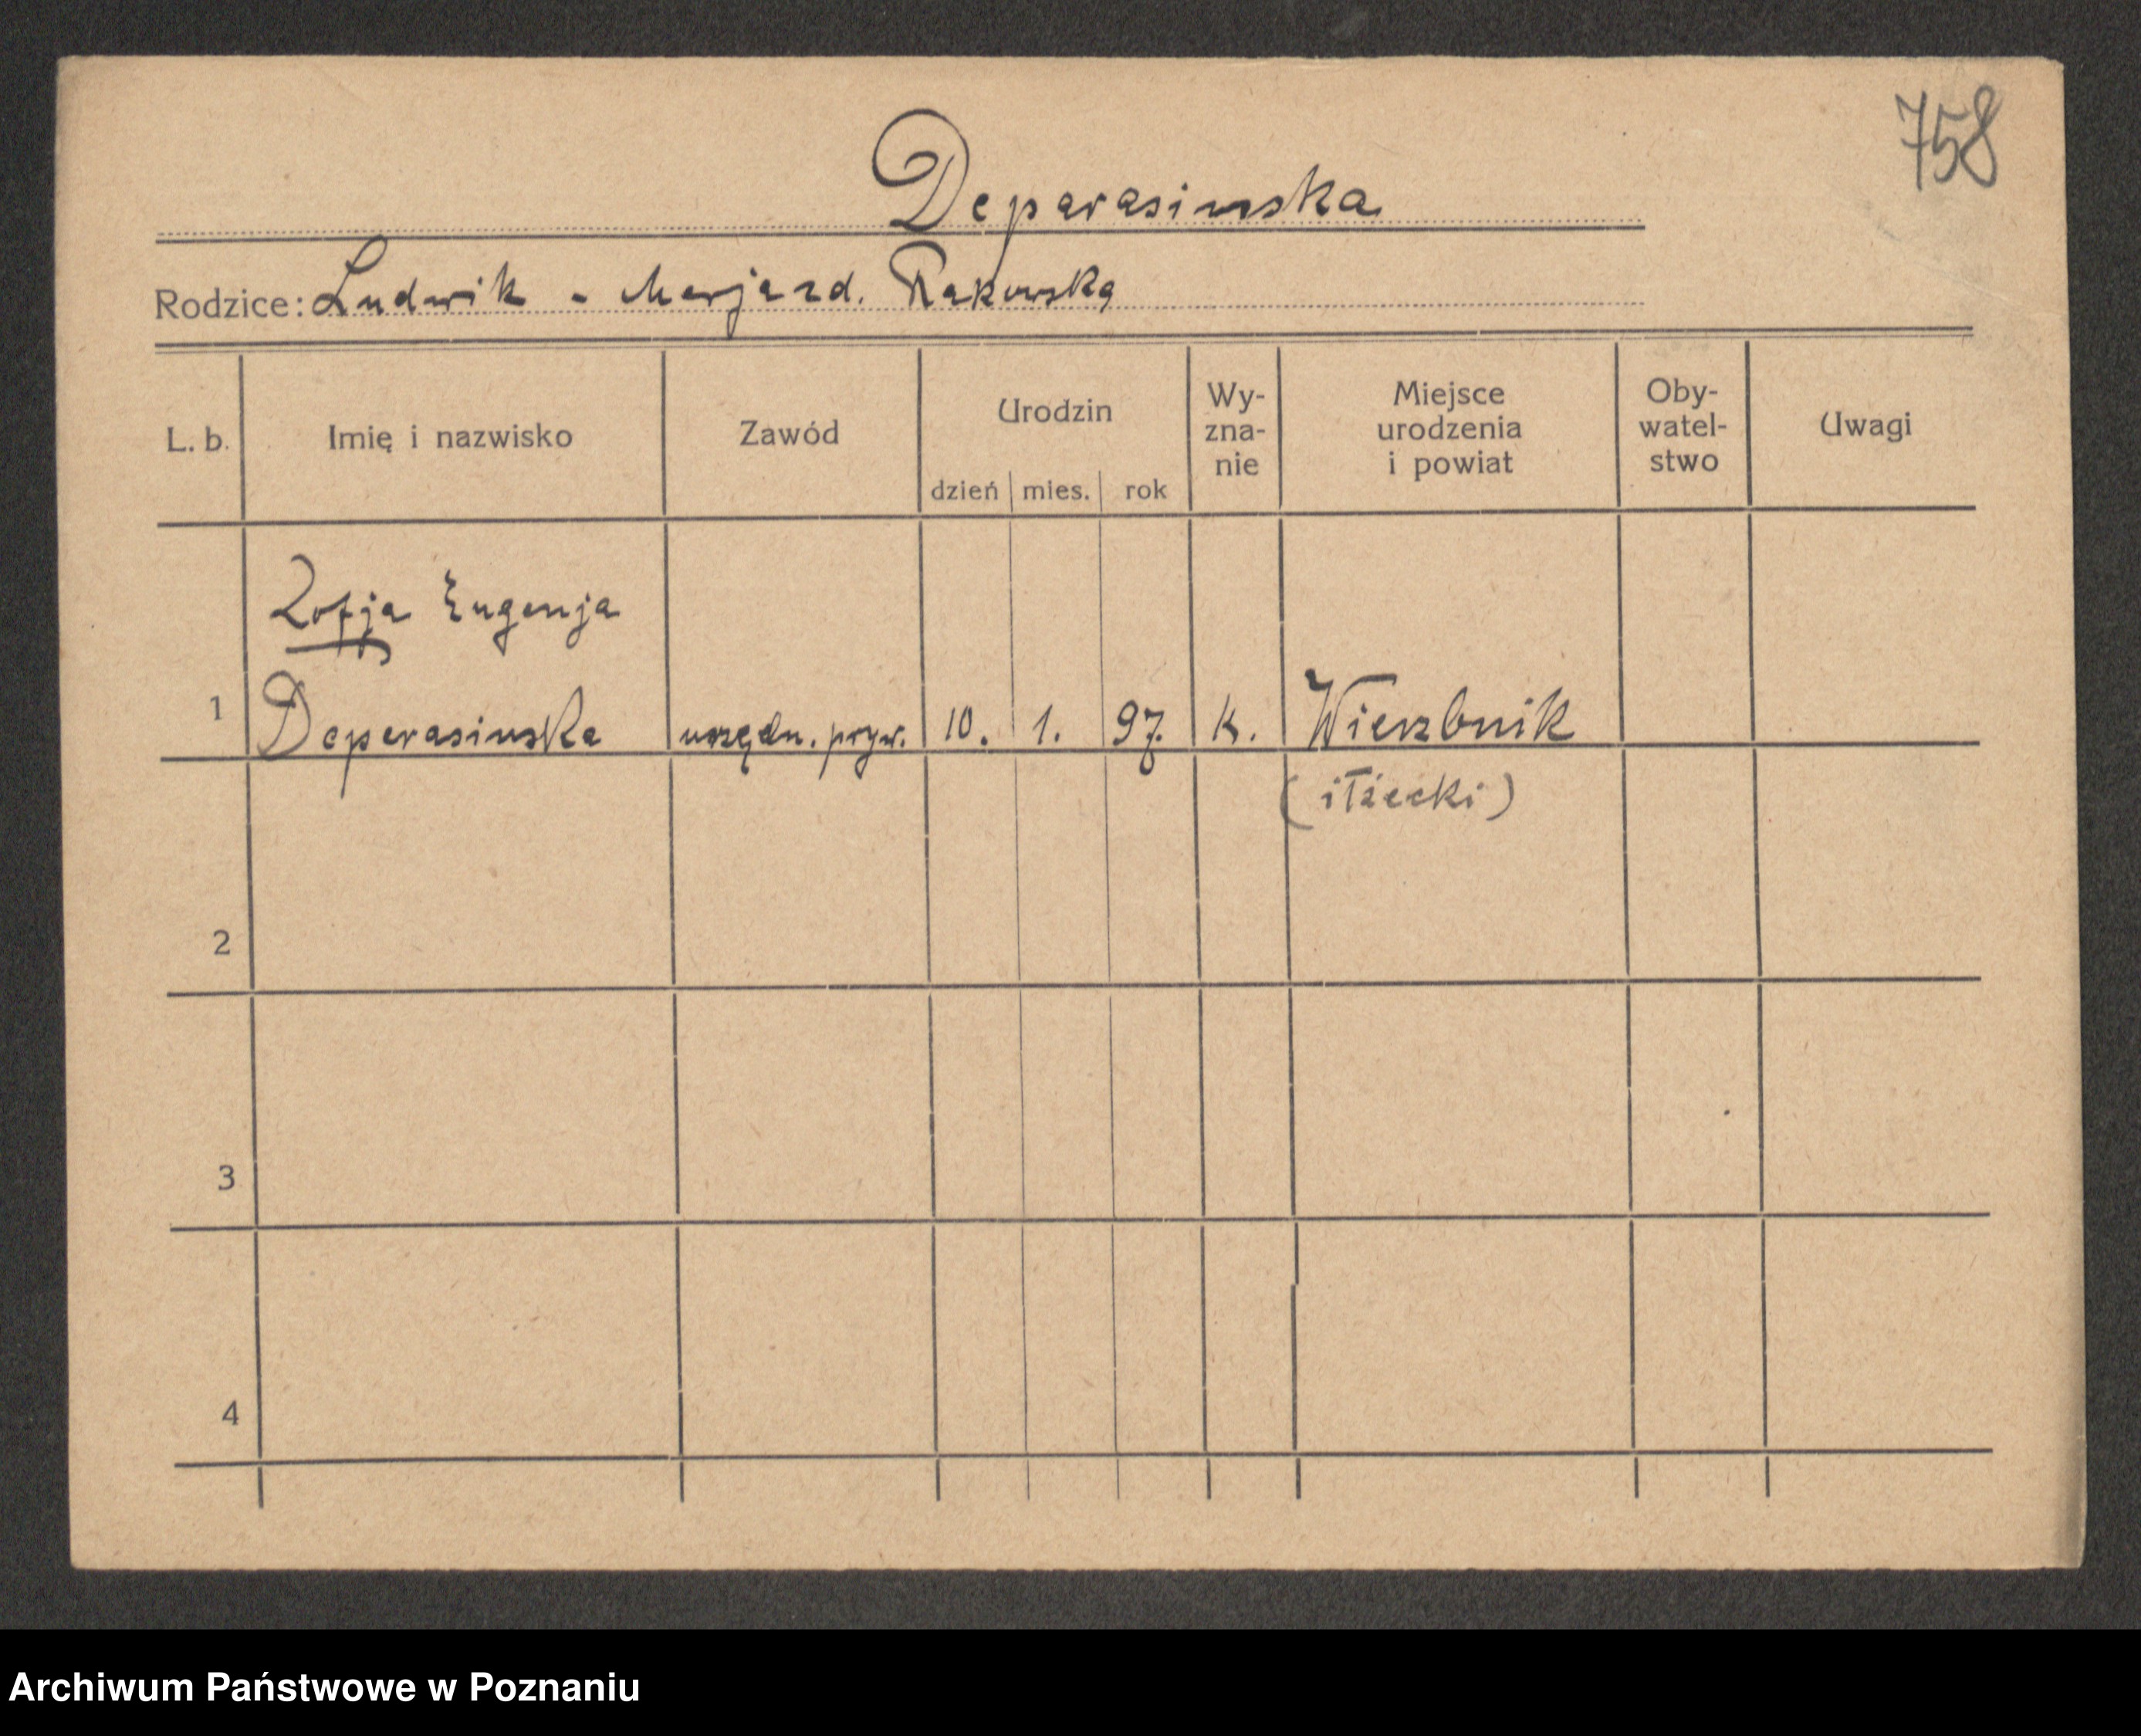 758
Deparasinska
Rodzice: Ludwik - Marja z d. Rakowska
L. b.
Imię i nazwisko
Zawód
Urodzin
dzień mies. rok
Wy-
zna-
nie
Miejsce
urodzenia
i powiat
Oby-
watel-
stwo
Uwagi
Zofja Eugenja
1 Deparasinska urzędn. pryw. 10. 1. 97. K. Wierzbnik
(iłżecki)
2
3
4
Archiwum Państwowe w Poznaniu